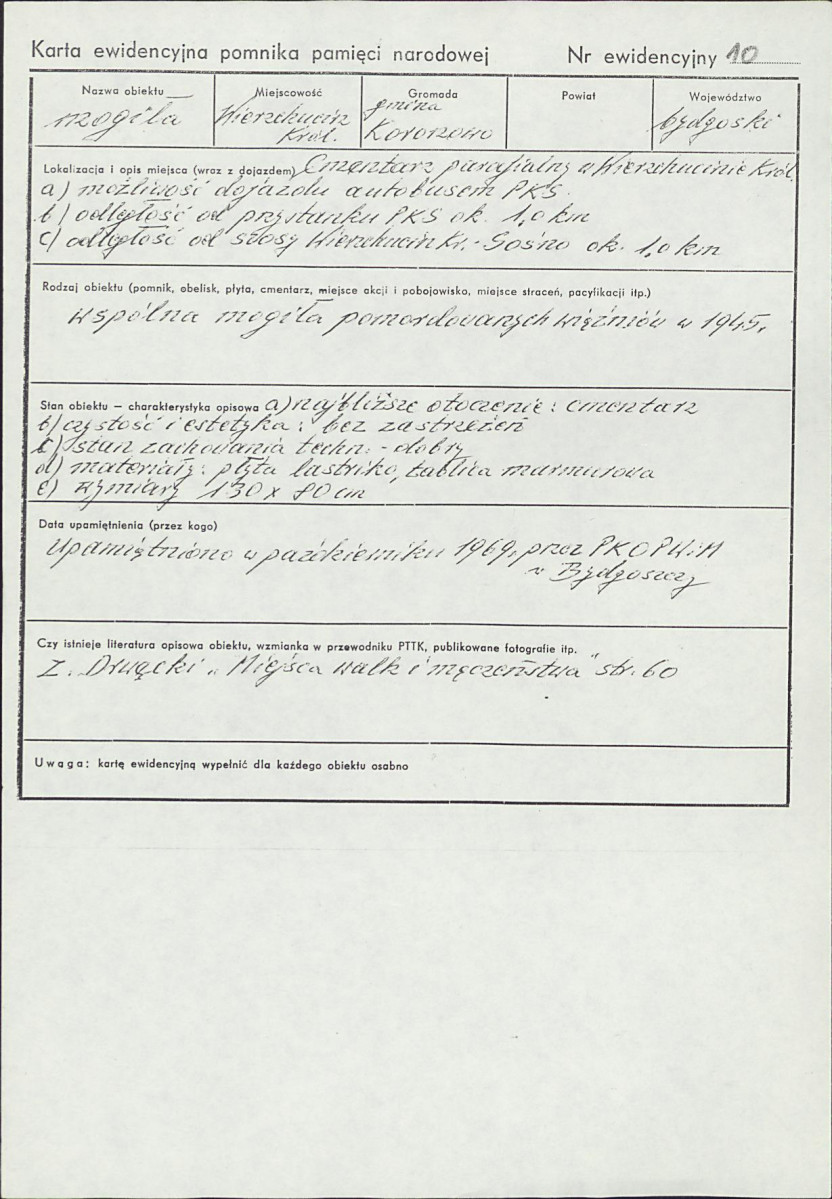 Karta ewidencyjna pomnika pamięci narodowej Nr ewidencyjny 10
Nazwa obiektu Miejscowość Gromada Powiat Województwo
mogiła Wierzchucin Król. gmina Koronowo bydgoski
Lokalizacja i opis miejsca (wraz z dojazdem) Cmentarz parafialny w Wierzchucinie Król.
a) możliwość dojazdu autobusem PKS.
b) odległość od przystanku PKS ok. 1,0 km
c) odległość od szosy Wierzchucin Kr. - Gośno ok. 1,0 km
Rodzaj obiektu (pomnik, obelisk, płyta, cmentarz, miejsce akcji i pobojowisko, miejsce straceń, pacyfikacji itp.)
wspólna mogiła pomordowanych więźniów w 1945.
Stan obiektu – charakterystyka opisowa a) najbliższe otoczenie: cmentarz
b) czystość i estetyka: bez zastrzeżeń
c) stan zachowania techn. - dobry
d) materiały: płyta lastriko, tablica marmurowa
e) wymiary 130 x 80 cm
Data upamiętnienia (przez kogo)
Upamiętniono w październiku 1969, przez PKOPWiM
w Bydgoszczy
Czy istnieje literatura opisowa obiektu, wzmianka w przewodniku PTTK, publikowane fotografie itp.
Z. Drwęcki „Miejsca walk i męczeństwa" str. 60
Uwaga: kartę ewidencyjną wypełnić dla każdego obiektu osobno